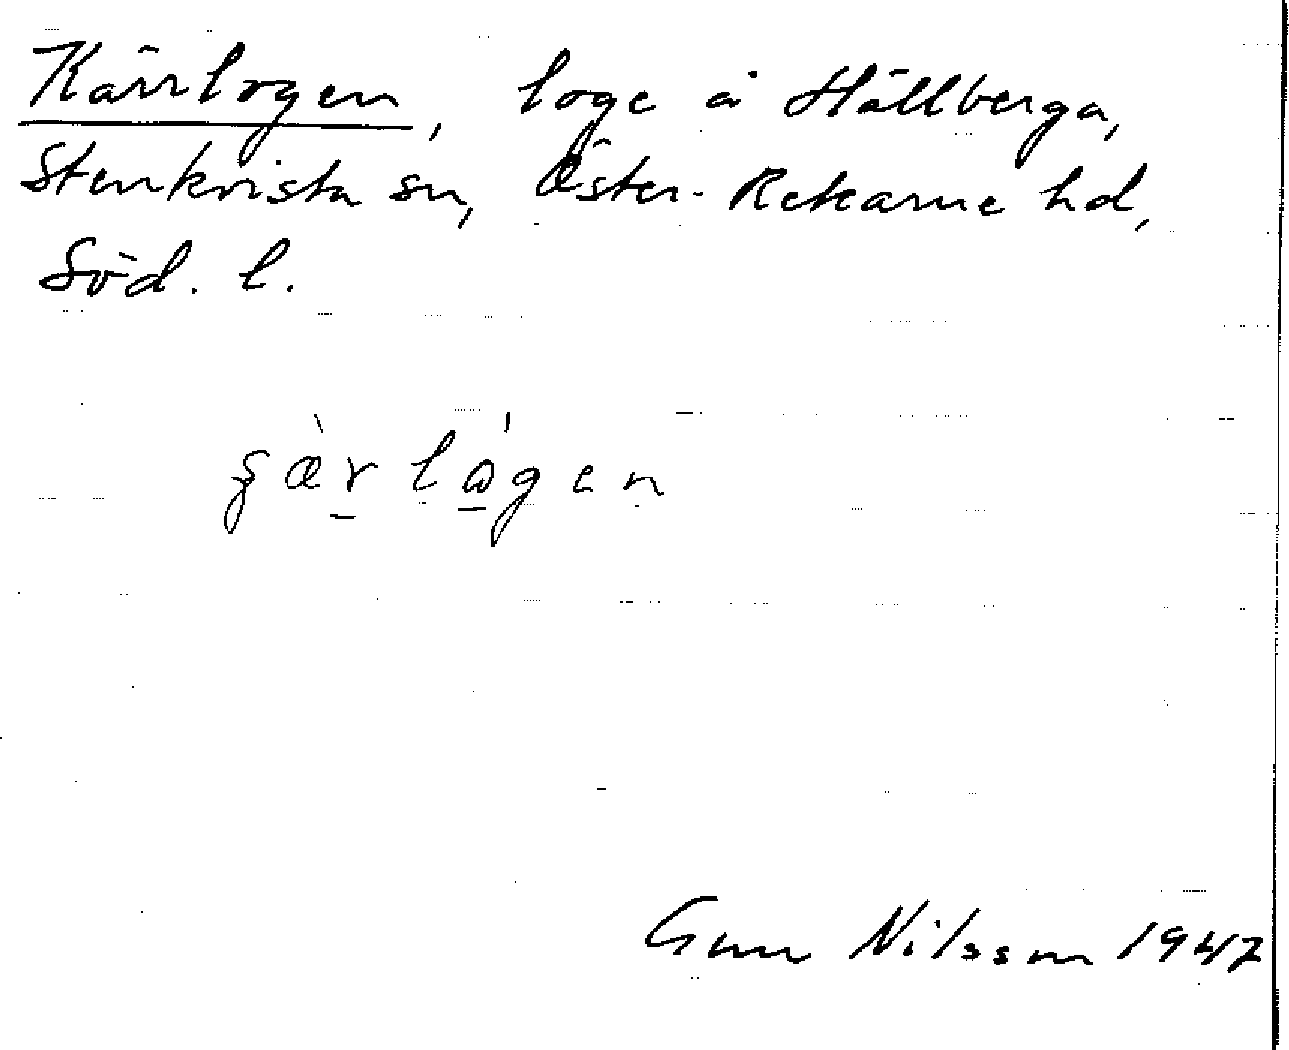 Kärrlogen, loge å Hällberga,
Stenkvista sn, Öster-Rekarne hd,
Söd. l.
Gun Nilsson 1947